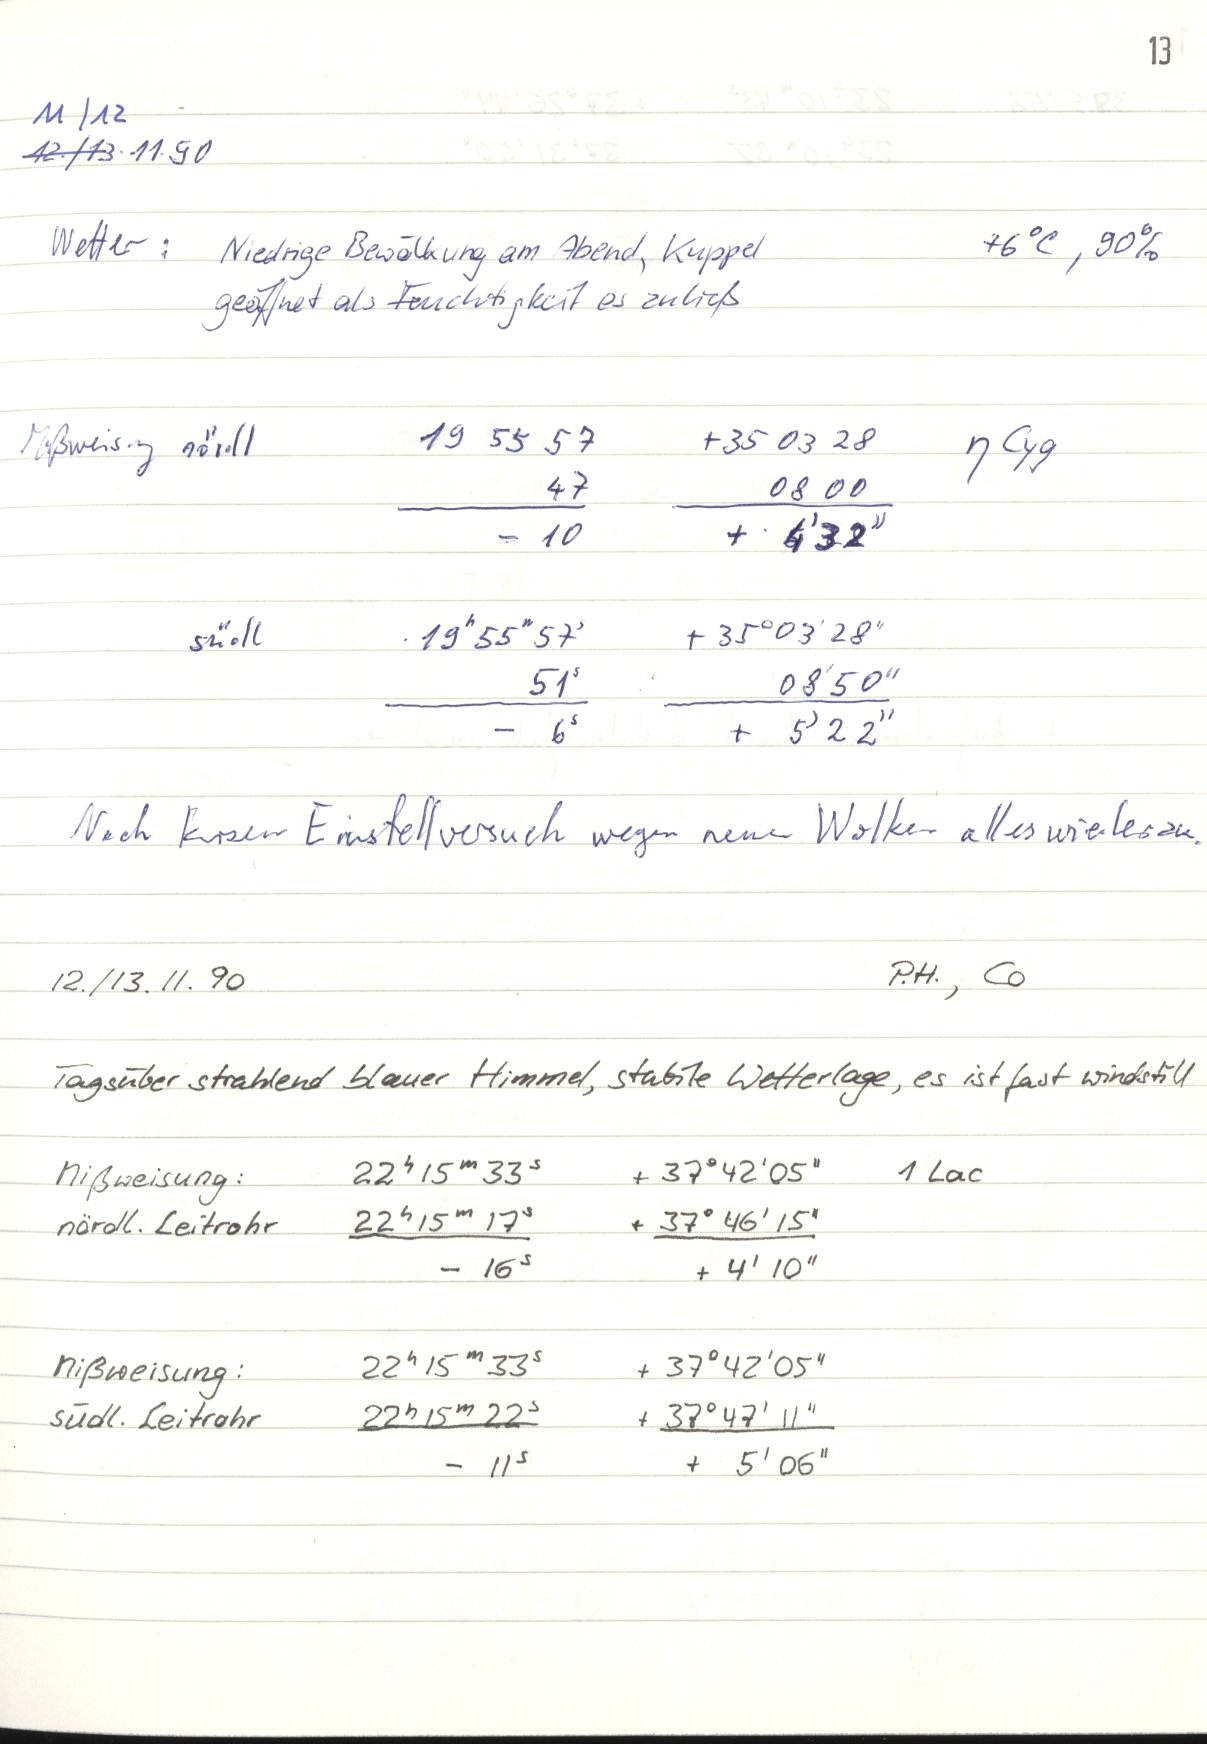 13
11/12
12./13. 11. 90
Wetter: Niedrige Bewölkung am Abend, Kuppel +6°C, 90%
geöffnet als Feuchtigkeit es zuließ
Mißweisung nördl 19 55 57 +35 03 28 η Cyg
47 08 00
- 10 + 4' 32"
südl 19h 55m 57s +35° 03' 28"
51s 08' 50"
- 6s + 5' 22"
Nach kurzem Einstellversuch wegen neuer Wolken alles wieder zu.
12./13. 11. 90 P.H., Co
Tagsüber strahlend blauer Himmel, stabile Wetterlage, es ist fast windstill
Mißweisung: 22h 15m 33s + 37° 42' 05" 1 Lac
nördl. Leitrohr 22h 15m 17s + 37° 46' 15"
- 16s + 4' 10"
Mißweisung: 22h 15m 33s + 37° 42' 05"
südl. Leitrohr 22h 15m 22s + 37° 47' 11"
- 11s + 5' 06"